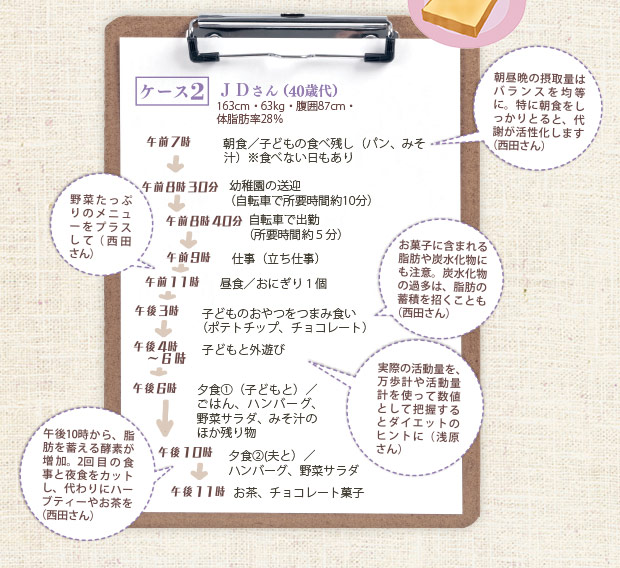 ケース2 JDさん(40歳代)
163cm・63kg・腹囲87cm・
体脂肪率28%
午前7時 朝食／子どもの食べ残し(パン、みそ
汁)※食べない日もあり
午前8時30分 幼稚園の送迎
(自転車で所要時間約10分)
午前8時40分 自転車で出勤
(所要時間約5分)
午前9時 仕事(立ち仕事)
午前11時 昼食／おにぎり1個
午後3時 子どものおやつをつまみ食い
(ポテトチップ、チョコレート)
午後4時
〜6時 子どもと外遊び
午後6時 夕食①(子どもと)／
ごはん、ハンバーグ、
野菜サラダ、みそ汁の
ほか残り物
午後10時 夕食②(夫と)／
ハンバーグ、野菜サラダ
午後11時 お茶、チョコレート菓子
朝昼晩の摂取量は
バランスを均等
に。特に朝食をし
っかりとると、代
謝が活性化します
(西田さん)
野菜たっぷ
りのメニュ
ーをプラス
して(西田
さん)
お菓子に含まれる
脂肪や炭水化物に
も注意。炭水化物
の過多は、脂肪の
蓄積を招くことも
(西田さん)
実際の活動量を、
万歩計や活動量
計を使って数値
として把握する
とダイエットの
ヒントに(浅原
さん)
午後10時から、脂
肪を蓄える酵素が
増加。2回目の食
事と夜食をカット
し、代わりにハー
ブティーやお茶を
(西田さん)